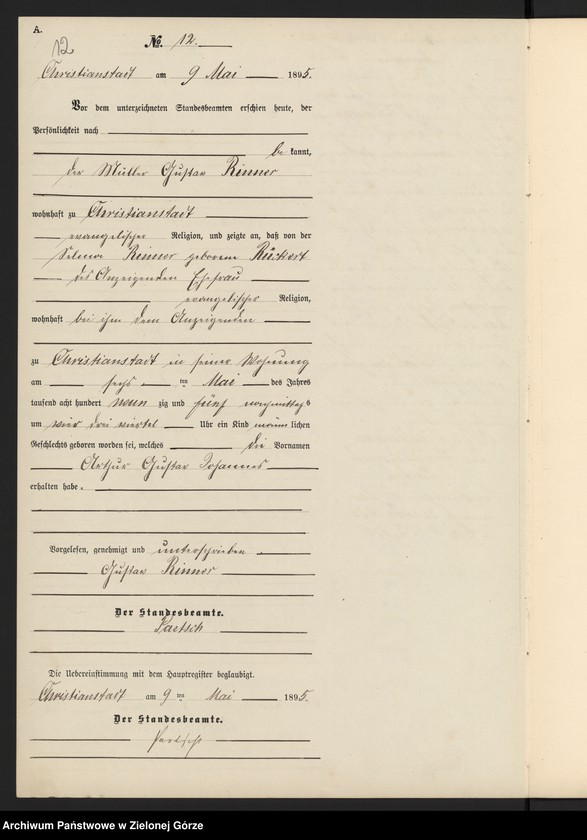 A.
12
No. 12.
Christianstadt am 9 Mai 1895.
Vor dem unterzeichneten Standesbeamten erschien heute, der
Persönlichkeit nach
be kannt,
der Müller Gustav Rinner
wohnhaft zu Christianstadt
evangelischer Religion, und zeigte an, daß von der
Selma Rinner geborene Rückert
des Anzeigenden Ehefrau
evangelischer Religion,
wohnhaft bei ihm dem Anzeigenden
zu Christianstadt in seiner Wohnung
am sechs ten Mai des Jahres
tausend acht hundert neun zig und fünf nachmittags
um vier drei viertel Uhr ein Kind männ lichen
Geschlechts geboren worden sei, welches die Vornamen
Arthur Gustav Johannes
erhalten habe.
Vorgelesen, genehmigt und unterschrieben
Gustav Rinner
Der Standesbeamte.
Paetsch
Die Uebereinstimmung mit dem Hauptregister beglaubigt.
Christianstadt am 9 ten Mai 1895.
Der Standesbeamte.
Paetsch
Archiwum Państwowe w Zielonej Górze